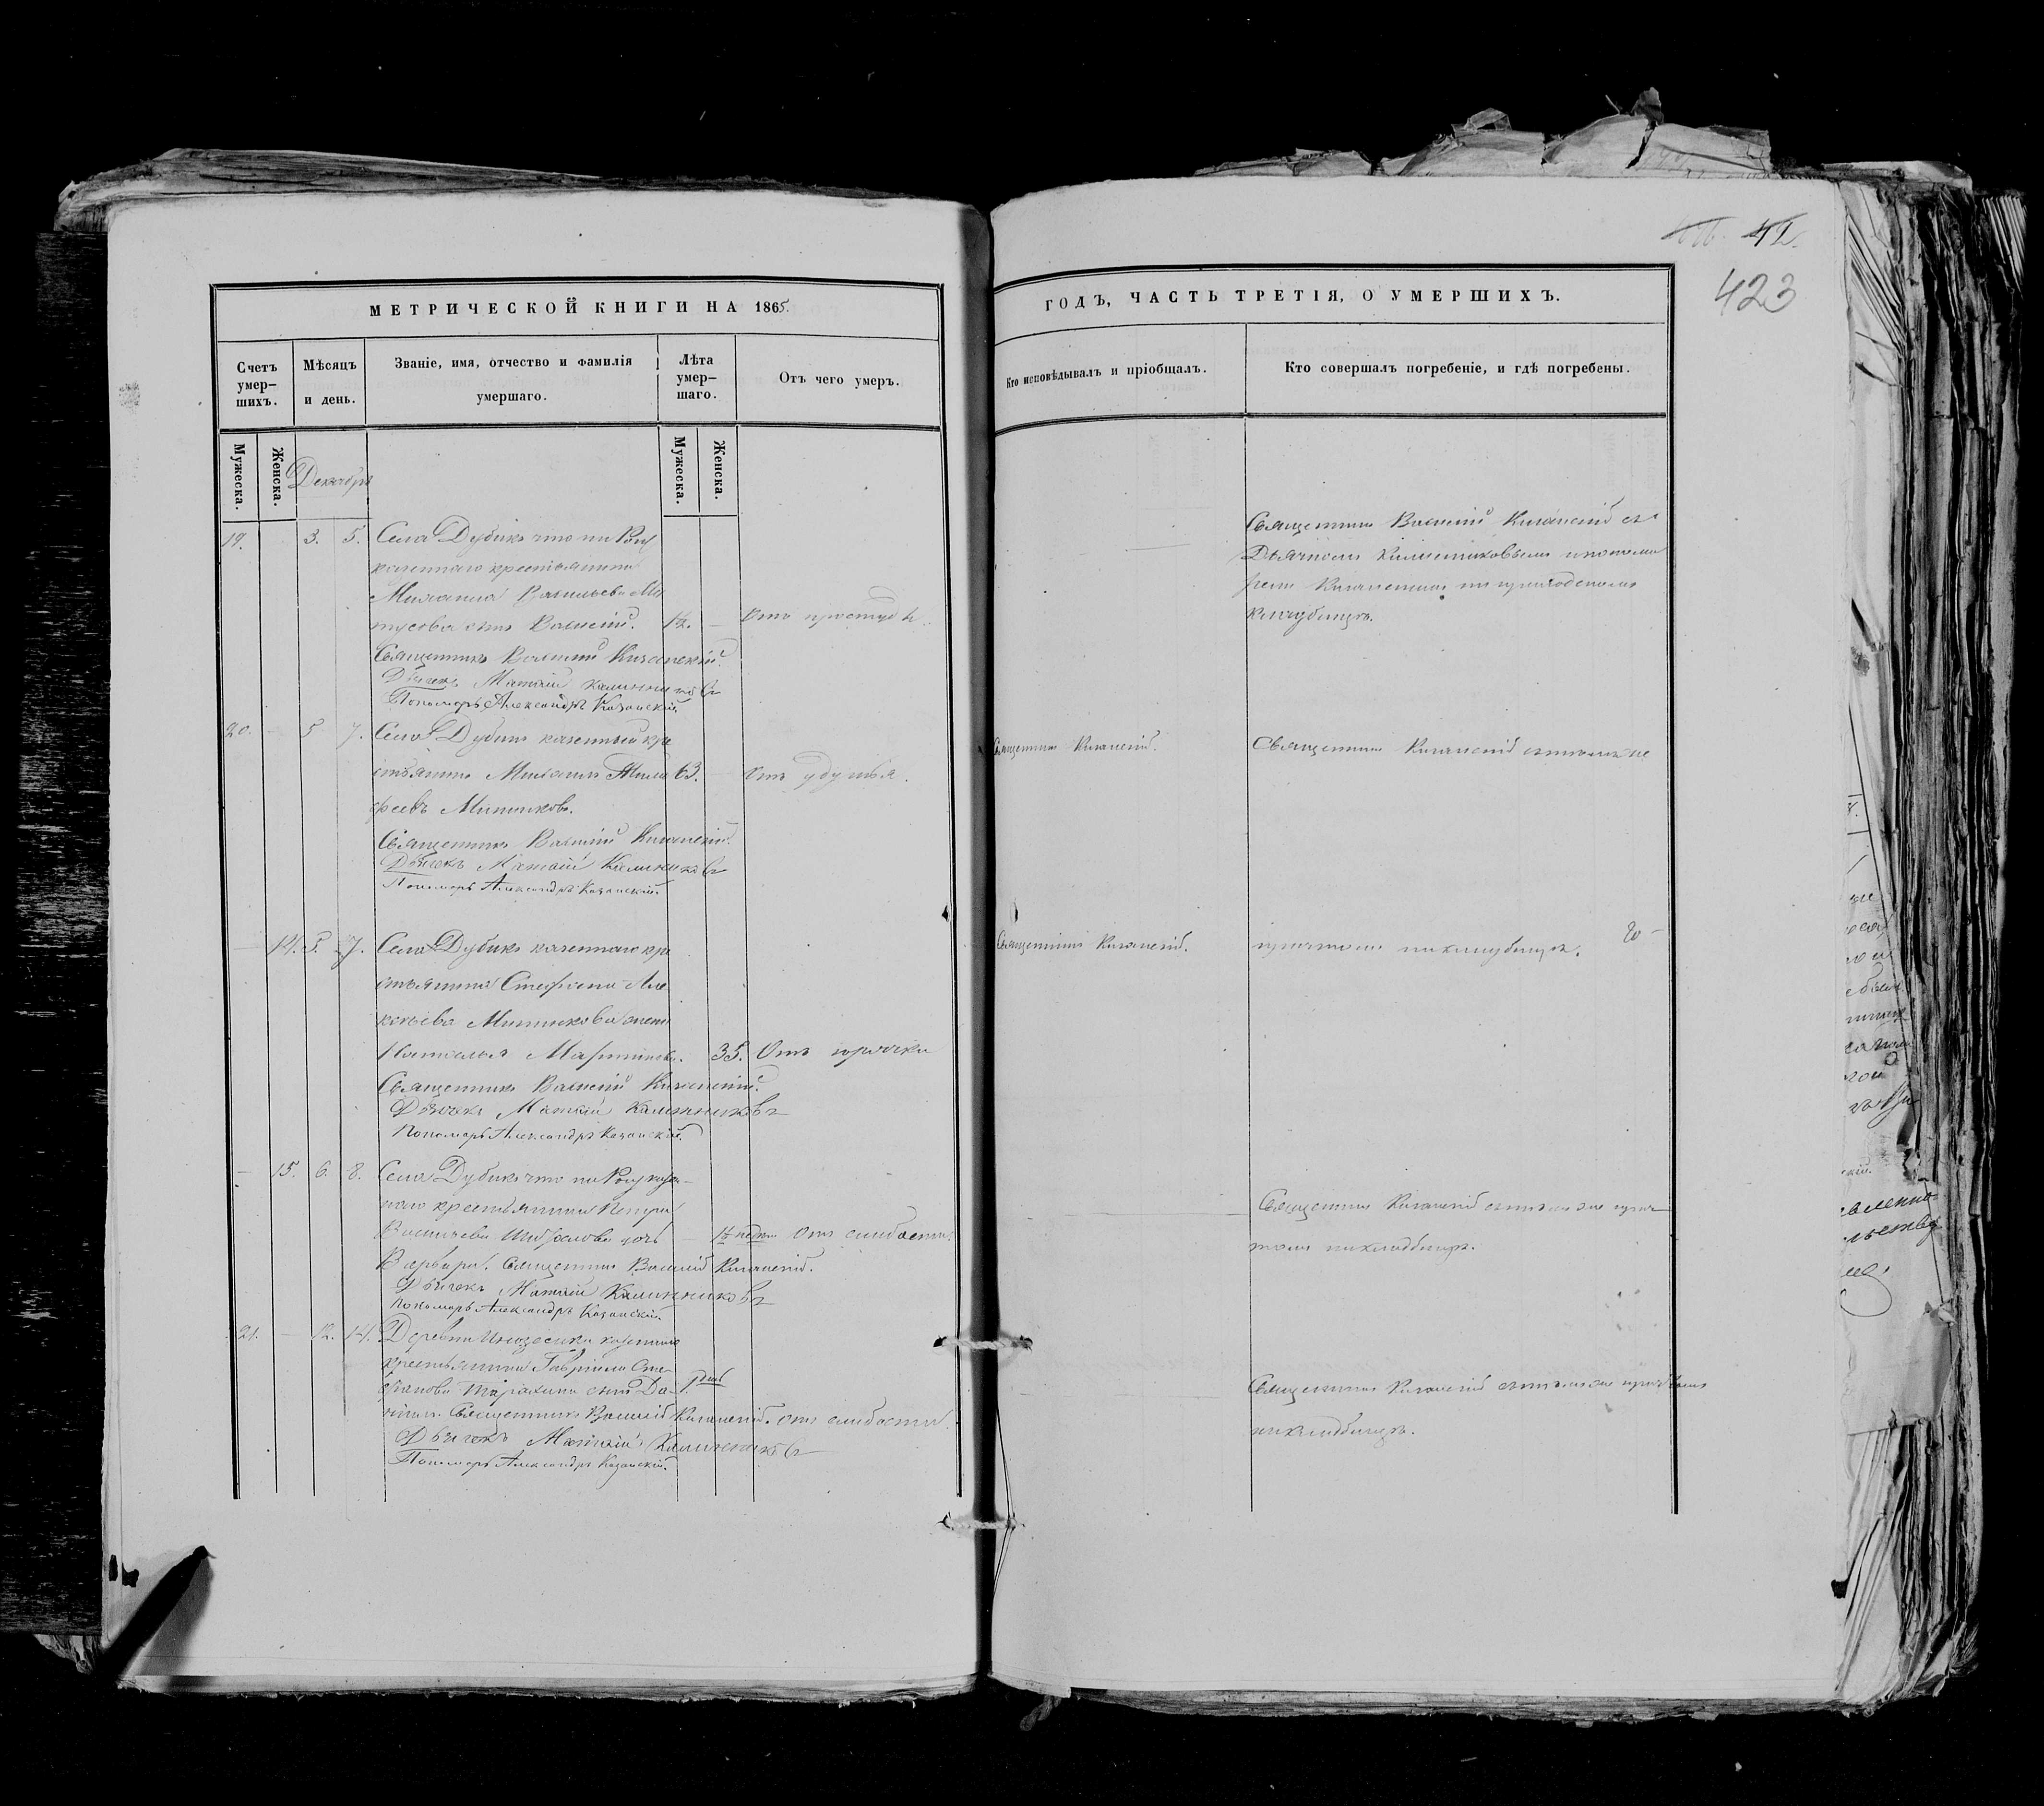 423
МЕТРИЧЕСКОЙ КНИГИ НА 1865.
ГОДЪ, ЧАСТЬ ТРЕТІЯ, О УМЕРШИХЪ.
Счетъ умер-шихъ.
Мѣсяцъ и день.
Званіе, имя, отчество и фамилія умершаго.
Лѣта умер-шаго.
Отъ чего умеръ.
Кто исповѣдывалъ и пріобщалъ.
Кто совершалъ погребеніе, и гдѣ погребены.
Мужеска.
Женска.
Мужеска.
Женска.
Декабрь
19. 3. 5. Села Дубикъ что на
казеннаго крестьянина
Михаила Васильева
сынъ Василій. Отъ простуды.
Священникъ Василій Казанскій.
Дьячекъ Матвій Калинниковъ
Пономарь Александръ Казанскій.
Священникъ Василій Казанскій съ
Дьячкомъ Калинниковымъ и понома
ремъ Казанскимъ на приходскомъ
кладбищѣ.
20. 5 7. Села Дубикъ казенный кре
стьянинъ Михаилъ Тимо 63. Отъ удушья.
феевъ Митинковъ.
Священникъ Василій Казанскій.
Дьячекъ Матвій Калинниковъ
Пономарь Александръ Казанскій.
Священникъ Казанскій.
Священникъ Казанскій съ тѣмъ же
14. 5. 7. Села Дубикъ казеннаго кре
стьянина Стефана Але
ксѣева Митинкова жена
Наталья Мартинова. 35. Отъ горячки
Священникъ Василій Казанскій.
Дьячекъ Матвій Калинниковъ
Пономарь Александръ Казанскій.
Священникъ Казанскій.
причтомъ на кладбищѣ.
15. 6. 8. Села Дубикъ что на казен-
наго крестьянина Петра
Васильева дочь недѣли Отъ слабости.
Варвара. Священникъ Василій Казанскій.
Дьячекъ Матвій Калинниковъ
Пономарь Александръ Казанскій.
Священникъ Казанскій съ тѣмъ же прич
томъ на кладбищѣ.
21. 12. 14. Деревни казеннаго
крестьянина Гавріила Сте
фанова сынъ Да
ніилъ. Священникъ Василій Казанскій. Отъ слабости.
Дьячекъ Матвій Калинниковъ
Пономарь Александръ Казанскій.
Священникъ Казанскій съ тѣмъ же причтомъ
на кладбищѣ.